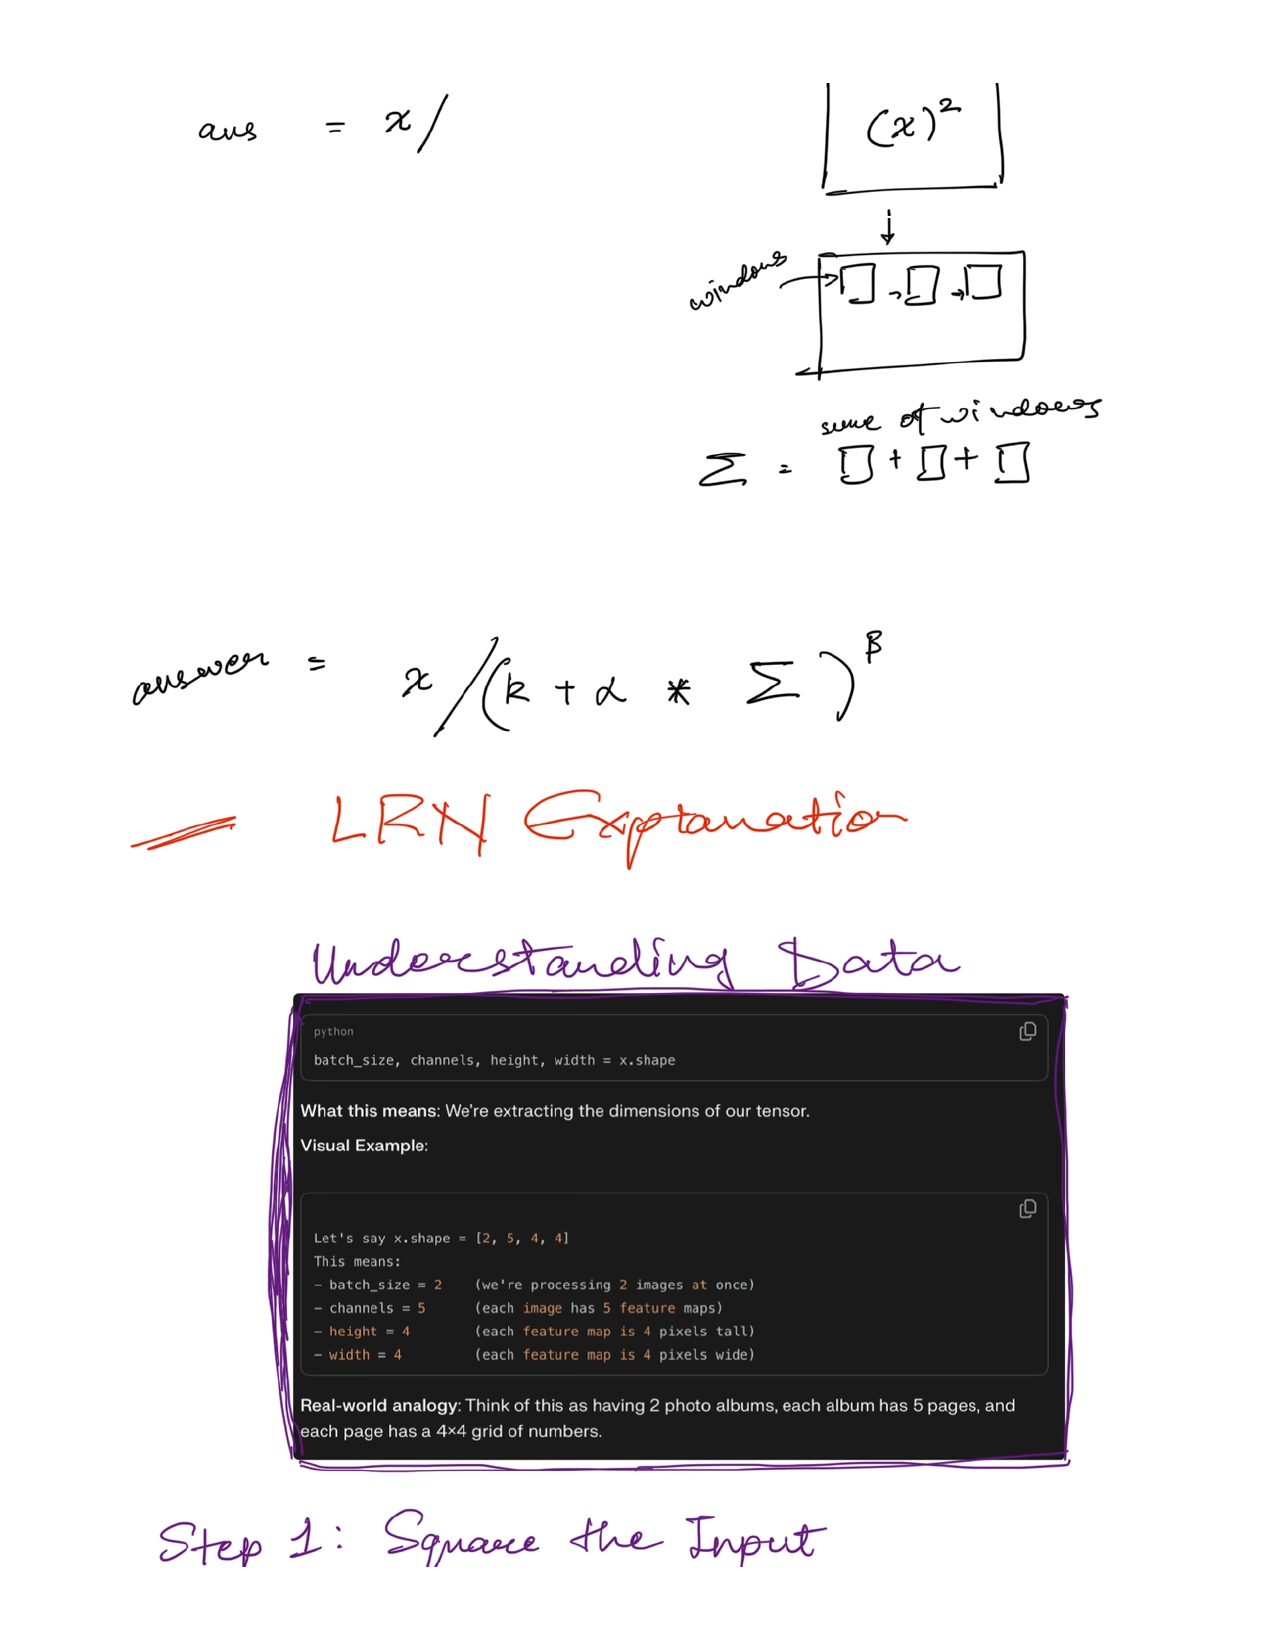 ans = x /
(x)²
windows
sum of windows
Σ = □ + □ + □
answer = x / (k + α * Σ)^β
LRN Explanation
Understanding Data
python
batch_size, channels, height, width = x.shape
What this means: We're extracting the dimensions of our tensor.
Visual Example:
Let's say x.shape = [2, 5, 4, 4]
This means:
– batch_size = 2 (we're processing 2 images at once)
– channels = 5 (each image has 5 feature maps)
– height = 4 (each feature map is 4 pixels tall)
– width = 4 (each feature map is 4 pixels wide)
Real-world analogy: Think of this as having 2 photo albums, each album has 5 pages, and
each page has a 4×4 grid of numbers.
Step 1: Square the Input